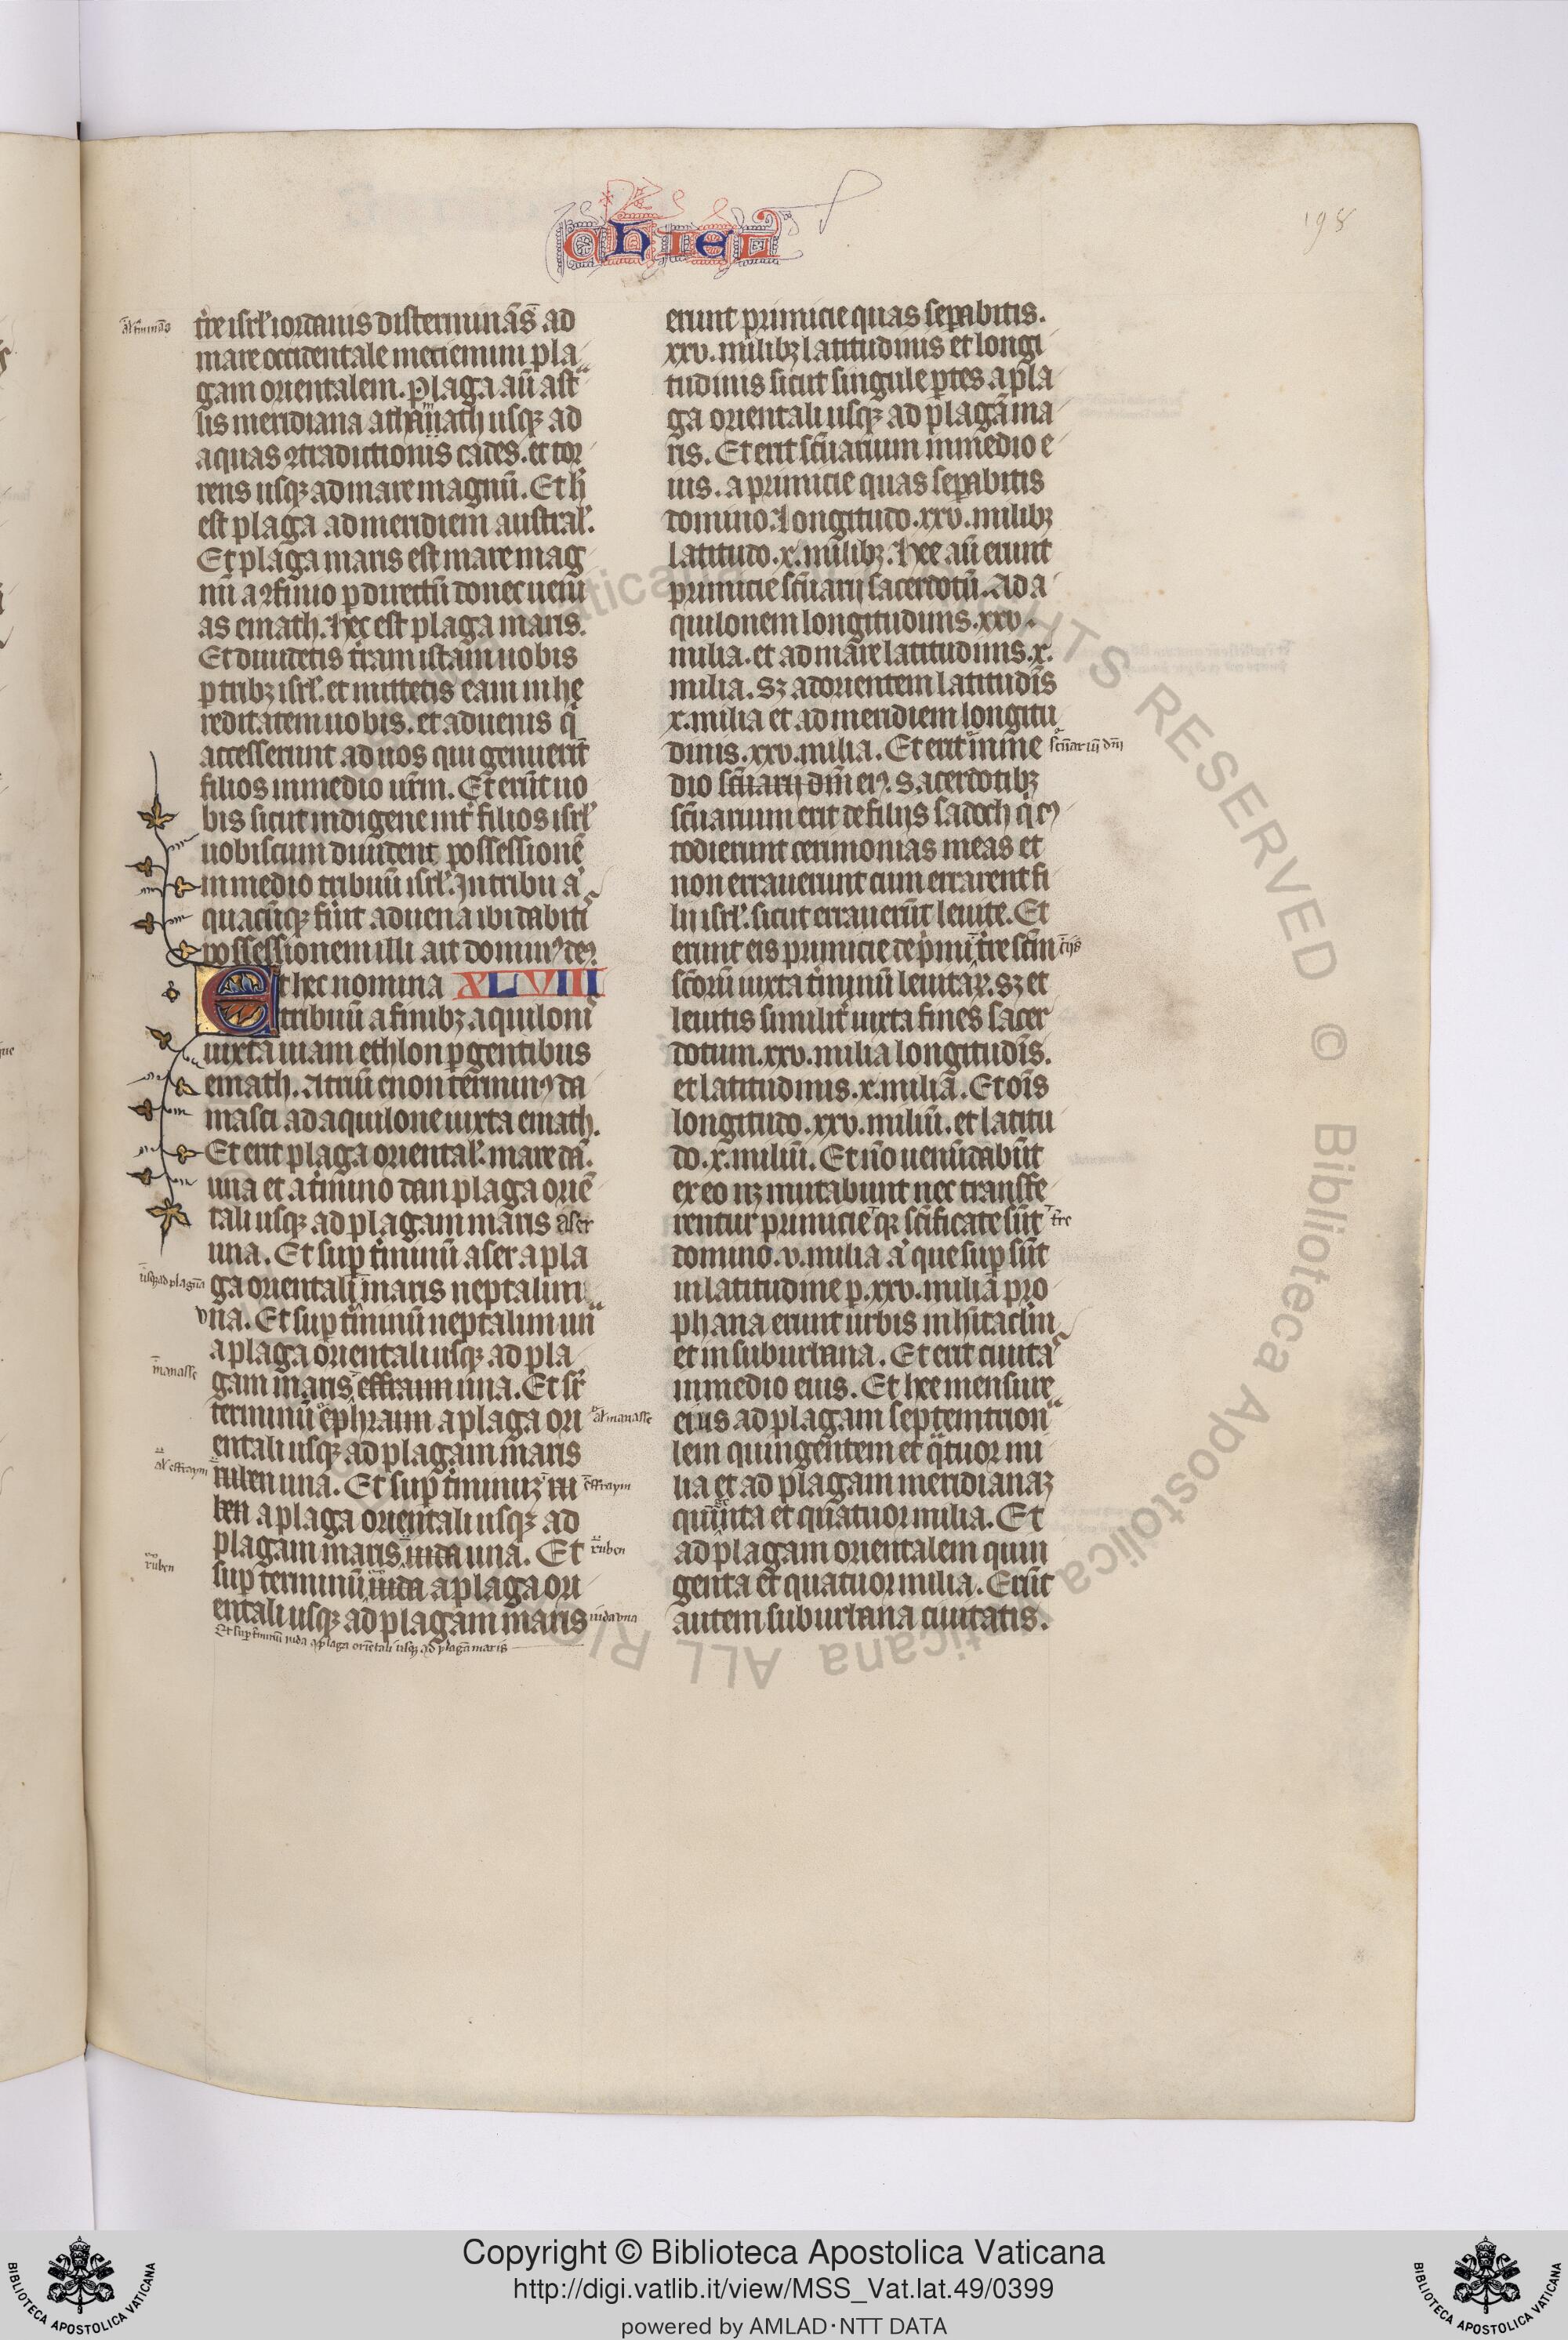 chiel
198
t̄re isrl' iordanis disterminās̄ ad
mare occidentale meciemini pla
gam orientalem. Plaga aū aust
lis meridiana a thamath usqꝫ ad
aquas ꝯtradictionis cades. et tor
rens usqꝫ ad mare magnū. Et h'
est plaga ad meridiem austral'.
Et plaga maris est mare mag
nū a ꝯfinio ꝑ directū donec ueni
as emath. Hec est plaga maris.
Et diuidetis t'ram istam uobis
ꝑ tribꝫ isrl'. et mittetis eam in he
reditatem uobis. et aduenis q'
accesserunt ad uos qui genuerīt
filios in medio ur̄m. Et erūt uo
bis sicut indigene int' filios isrl'
uobiscum diuident possessionē
in medio tribuū isrl'. In tribu a'
quacūqꝫ fu'it aduena ibi dabitis
possessionem illi ait dominꝰ deꝰ.
Et hec nomina XLVIII
tribuū a finibꝫ aquilonis
iuxta uiam ethlon ꝑgentibus
emath. Atriū enon terminꝰ da
masci ad aquilone iuxta emath.
Et erit plaga oriental'. mare da'.
una et a t'mino dan plaga oriē
tali usqꝫ ad plagam maris aser
una. Et suꝑ t'minū aser a pla
ga orientali maris neptalim
vna. Et suꝑ t'minū neptalim
a plaga orientali usqꝫ ad pla
gam maris effraim una. Et sr'
terminū ephraim a plaga ori
entali usqꝫ ad plagam maris
ruben una. Et suꝑ t'minuꝫ ru
ben a plaga orientali usqꝫ ad
plagam maris iuda una. Et
suꝑ terminū iuda a plaga ori
entali usqꝫ ad plagam maris
Et suꝑ t'minū iuda a plaga oriētali usqꝫ ad plagā maris
usqꝫ ad plagā
manasse
al' effraym
ruben
al' manasse
effraym
ruben
iuda vna
erunt primicie quas seꝑabitis.
xxv. milibꝫ latitudinis et longi
tudinis sicut singule ꝑtes a pla
ga orientali usqꝫ ad plagā ma
ris. Et erit sc̄uarium in medio e
ius. a primicie quas seꝑabitis
domino. Longitudo .xxv. milibꝫ
latitudo .x. milibꝫ. Hee aū erunt
primicie sc̄uarij sacerdotū. Ad a
quilonem longitudinis .xxv.
milia. et ad mare latitudinis .x.
milia. Sꝫ ad orientem latitudīs
x. milia et ad meridiem longitu
dinis .xxv. milia. Et erit in me
dio sc̄uarij dn̄i eiꝰ. Sacerdotibꝫ
sc̄uarium erit de filijs sadoch q' cꝰ
todierunt cerimonias meas et
non errauerunt cum errarent fi
lij isrl'. sicut errauerūt leuite. Et
erunt eis primicie de p'mi t're sc̄m
sc̄orū iuxta t'minū leuitaꝝ. Sꝫ et
leuitis similit' iuxta fines sacer
dotum .xxv. milia longitudīs.
et latitudinis .x. milia. Et oīs
longitudo .xxv. miliū. et latitu
do .x. miliū. Et n̄o uenūdabūt
ex eo nꝫ mutabunt nec transfe
rentur primicie qꝫ sc̄ificate sūt
domino. v. milia a' que suꝑ sūt
in latitudine ꝑ .xxv. milia pro
phana erunt urbis in hītaclm̄
et in suburbana. Et erit ciuitas
in medio eius. Et hee mensure
eius ad plagam septemtriona
lem quingentem et q̄tuor mi
lia et ad plagam meridianaꝫ
quinta et quatuor milia. Et
ad plagam orientalem quin
genta et quatuor milia. Erūt
autem suburbana ciuitatis.
sc̄uariū dn̄i
t're
Copyright © Biblioteca Apostolica Vaticana
http://digi.vatlib.it/view/MSS_Vat.lat.49/0399
powered by AMLAD·NTT DATA
BIBLIOTECA APOSTOLICA VATICANA
BIBLIOTECA APOSTOLICA VATICANA
Biblioteca Apostolica Vaticana ALL RIGHTS RESERVED ©